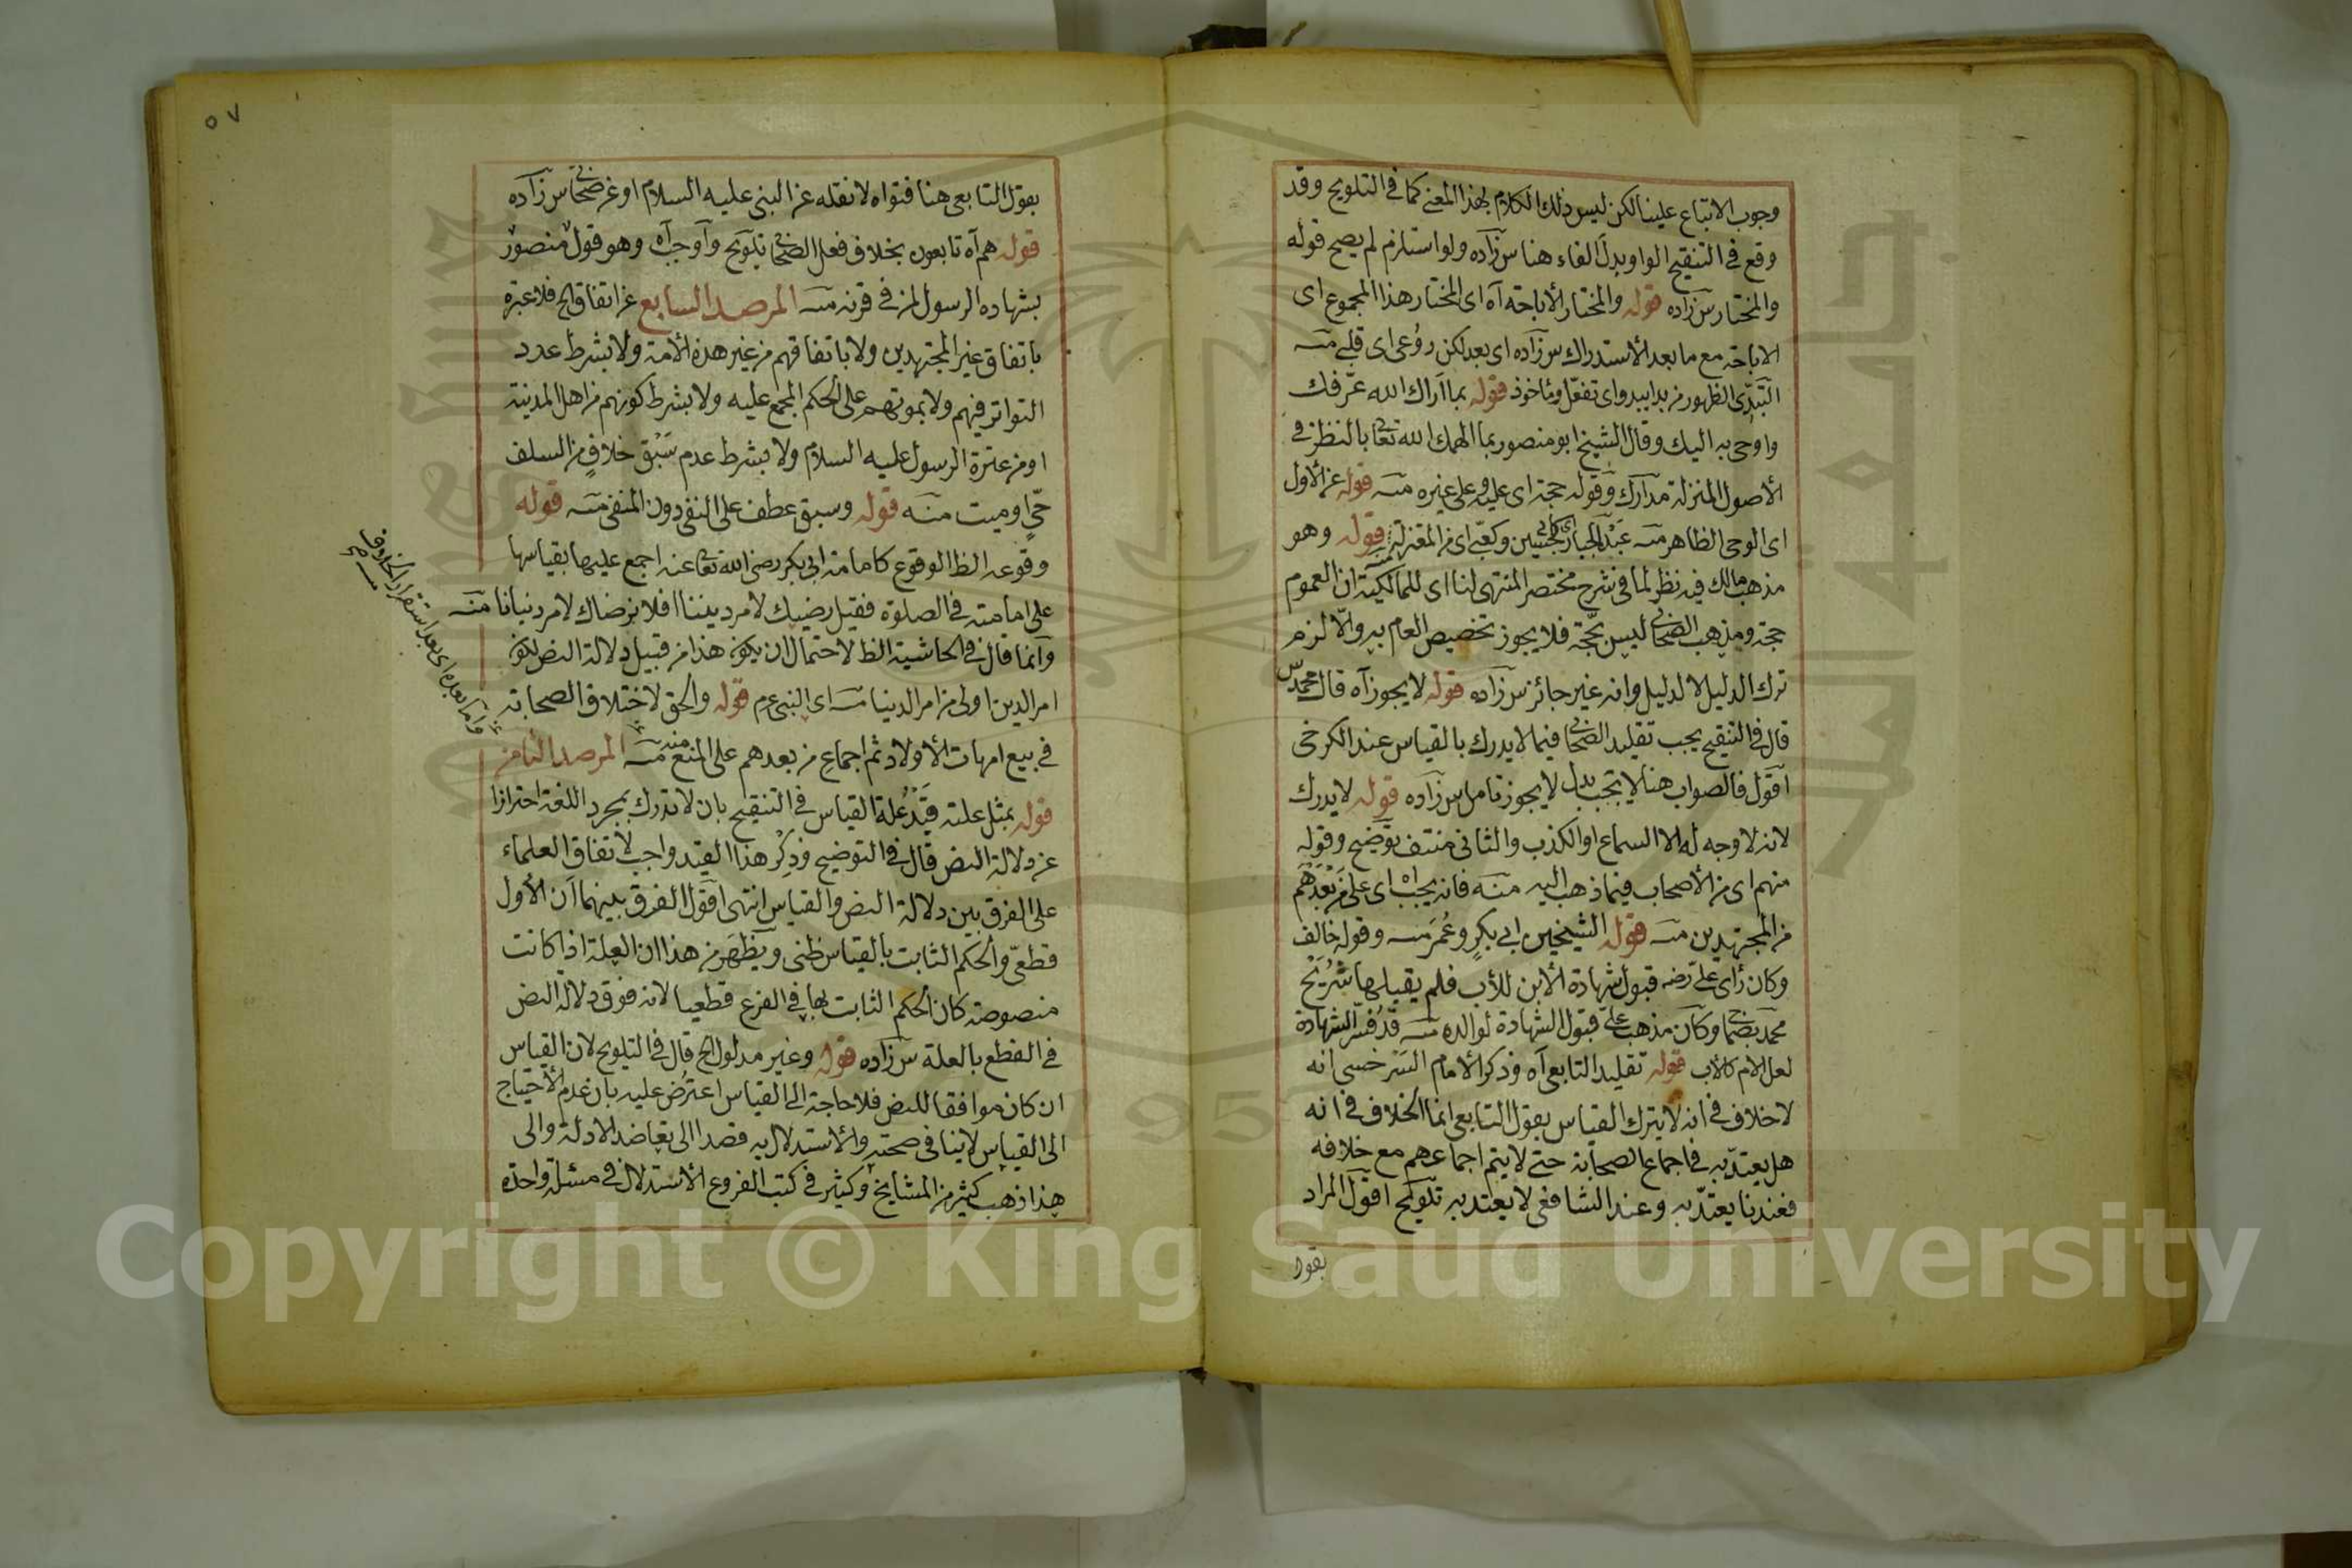 وجوب الاتباع علينا لكن ليس ذلك الكلام بهذا المعنى كما في التلويح وقد
وقع في التنقيح الواو بدل الفاء هنا س زاده ولو استلزم لم يصح قوله
والمختار س زاده قوله والمختار الأباحة آه اى المختار هذا المجموع اى
الاباحة مع ما بعد الأستدراك س زاده اى بعد لكن روعى اى قلبى منه
التبدّى الظهور من بدا يبدو اى تفعّل ومأخوذ قوله بما أراك الله عرّفك
واوحى به اليك وقال الشيخ ابو منصور بما الهمك الله تعا بالنظر في
الأصول المنزلة مدارك وقوله حجة اى عليه وعلى غيره منه قوله عن الأول
اى الوحى الظاهر منه عبد الجبار وكعبى اى من المعتزلة قوله وهو
مذهب مالك فيه نظر لما في شرح مختصر المنتهى لنا اى للمالكية ان العموم
حجة ومذهب الصحابى ليس بحجّة فلا يجوز تخصيص العام به والّا لزم
ترك الدليل لا لدليل وانه غير جائز س زاده قوله لا يجوز آه قال محمد س
قال في التنقيح يجب تقليد الصحابى فيما لا يدرك بالقياس عند الكرخى
اقول فالصواب هنا لا يجب بدل لا يجوز تامل س زاده قوله لا يدرك
لانه لا وجه له الا السماع او الكذب والثانى منتف توضيح وقوله
منهم اى من الأصحاب فيما ذهب اليه منه فانه يجب آه اى على من بعدهم
من المجتهدين منه قوله الشيخين ابى بكر وعمر منه وقوله خالف
وكان رأى على رضه قبول شهادة الأبن للأب فلم يقبلها شريح
وكان مذهب على قبول الشهادة لوالده منه قد فسّر الشهادة
لعل الام كالأب قوله تقليد التابعى آه وذكر الأمام السرخسى انه
لا خلاف في انه لا يترك القياس بقول التابعى انما الخلاف في انه
هل يعتدّ به في اجماع الصحابة حتى لا يتم اجماعهم مع خلافه
فعندنا يعتدّ به وعند الشافعى لا يعتد به تلويح اقول المراد
بقول
٥٧
بقول التابعى هنا فتواه لا نقله عن النبى عليه السلام او عن صحابى س زاده
قوله هم آه تابعون بخلاف فعل الصحابى تلويح وآوجب آه وهو قول منصور
بشهاده الرسول لمن في قرنه منه المرصد السابع عن اتفاق الخ فلا عبرة
باتفاق غير المجتهدين ولا باتفاقهم من غير هذه الأمة ولا بشرط عدد
التواتر فيهم ولا بموتهم على الحكم المجمع عليه ولا بشرط كونهم من اهل المدينة
او من عترة الرسول عليه السلام ولا بشرط عدم سَبْق خلافٍ من السلف
حىّ او ميت منه قوله وسبق عطف على النفى دون المنفى منه قوله
وقوعه الظ الوقوع كامامة ابى بكر رضى الله تعا عنه اجمع عليها بقياسها
على امامته في الصلوة فقيل رضيك لامر ديننا افلا نرضاك لامر دنيانا منه
وآنما قال في الحاشية الظ لاحتمال ان يكون هذا من قبيل دلالة النص لكون
امر الدين اولى من امر الدنيا منه اى النبى عم قوله والحق لاختلاف الصحابة
في بيع امهات الأولاد ثم اجماع من بعدهم على المنع منه المرصد الثامن
وآما بعده اى بعد استقرار الخلاف
منه صح
قوله بمثل علته قيّد علة القياس في التنقيح بان لا تدرك بمجرد اللغة احترازا
عن دلالة النص قال في التوضيح وذِكْر هذا القيد واجب لاتفاق العلماء
على الفرق بين دلالة النص والقياس انتهى اقول الفرق بينهما ان الأول
قطعىّ والحكم الثابت بالقياس ظنى ويظهر من هذا ان العلة اذا كانت
منصوصة كان الحكم الثابت بها في الفرع قطعيا لانه فوق دلالة النص
في القطع بالعلة س زاده قوله وغير مدلول الخ قال في التلويح لان القياس
ان كان موافقا للنص فلا حاجة الى القياس اعترض عليه بان عدم الأحتياج
الى القياس لا ينافى صحته والأستدلال به قصدا الى تعاضد الادلة والى
هذا ذهب كثير من المشايخ وكثير في كتب الفروع الأستدلال في مسئلة واحدة
Copyright © King Saud University